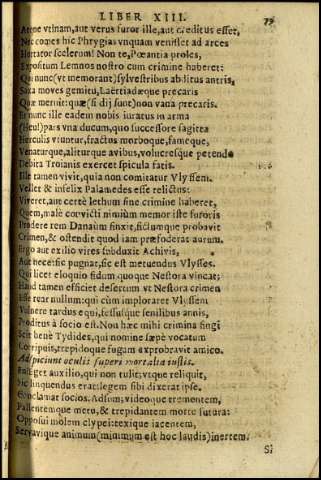 LIBER XIII. 79
Atque vtinam, aut verus furor ille, aut creditus esset,
Nec comes hic Phrygias vnquam venisset ad arces
Hortator scelerum! Non te, Pœantia proles,
Expositum Lemnos nostro cum crimine haberet:
Qui nunc (vt memorant) syluestribus abditus antris,
Saxa moves gemitu, Laërtiadæque precaris
Quæ meruit: quæ (si dij sunt) non vana precaris.
Et nunc ille eadem nobis iuratus in arma
(Heu!) pars vna ducum, quo successore sagittæ
Herculis vtuntur, fractus morboque, fameque,
Venaturque, aliturque avibus, volucresque petendo
Debita Troianis exercet spicula fatis.
Ille tamen vivit, quia non comitatur Vlyssem.
Vellet & infelix Palamedes esse relictus:
Viveret, aut certè lethum sine crimine haberet,
Quem, malè convicti nimiùm memor iste furoris
Prodere rem Danaûm finxit, fictumque probavit
Crimen, & ostendit quod iam præfoderat aurum.
Ergo aut exilio vires subduxit Achivis,
Aut nece: sic pugnat, sic est metuendus Vlysses.
Qui licet eloquio fidum quoque Nestora vincat;
Haud tamen efficiet desertum vt Nestora crimen
Esse rear nullum: qui cùm imploraret Vlyssem
Vulnere tardus equi, fessusque senilibus annis,
Proditus à socio est. Non hæc mihi crimina fingi
Scit benè Tydides, qui nomine sæpè vocatum
Corripuit, trepidoque fugam exprobravit amico.
Adspiciunt oculis superi mortalia iustis.
En! Eget auxilio, qui non tulit: vtque reliquit,
Sic linquendus erat: legem sibi dixerat ipse.
Conclamat socios. Adsum; videoque trementem,
Pallentemque metu, & trepidantem morte futura:
Opposui molem clypei: texique iacentem,
Servavique animum (minimum est hoc laudis) inertem.
Si